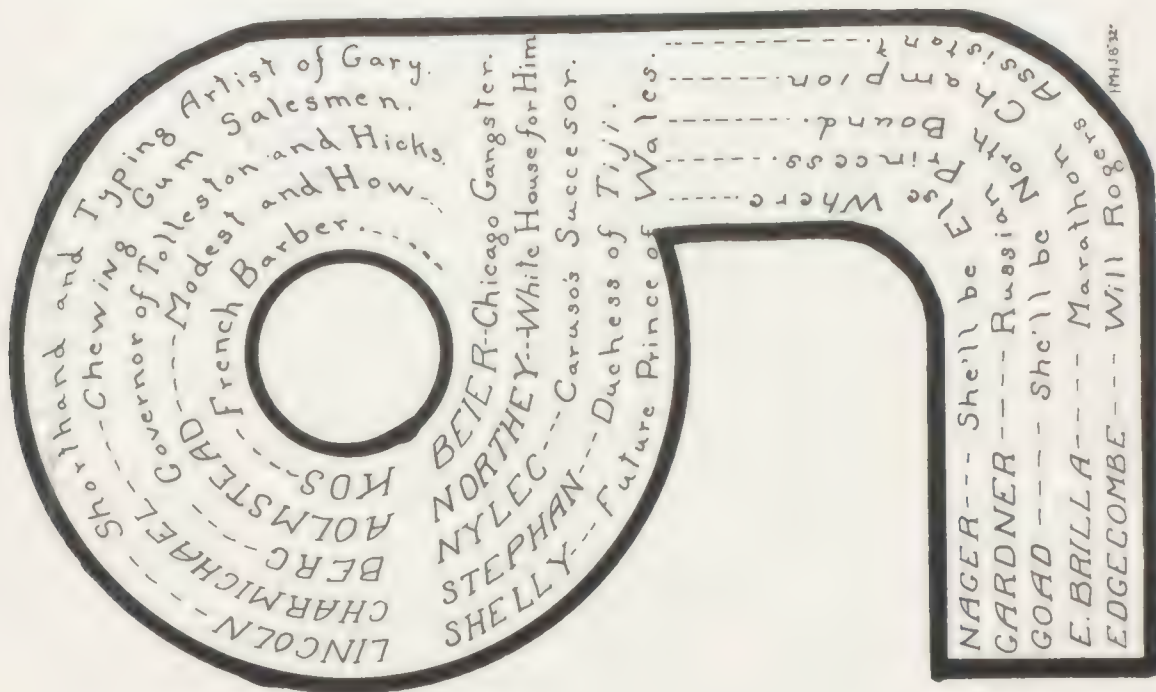 LINCOLN ---- Shorthand and Typing Artist of Gary.
CHARMICHAEL ---- Chewing Gum Salesmen.
BERG ---- Governor of Tolleston and Hicks.
AOLMSTEAD ---- Modest and How --
KOS --- French Barber.....
BEIER--Chicago Gangster.
NORTHEY--White House for Him
NYLEC --- Caruso's Successor.
STEPHAN --- Duchess of Tiji.
SHELLY --- Future Prince of Wales.
NAGER --- She'll be Else Where
GARDNER ---- Russian Princess
GOAD ---- She'll be North Bound.
E. BRILLA ---- Marathon Champion
EDGECOMBE --- Will Rogers Assistant